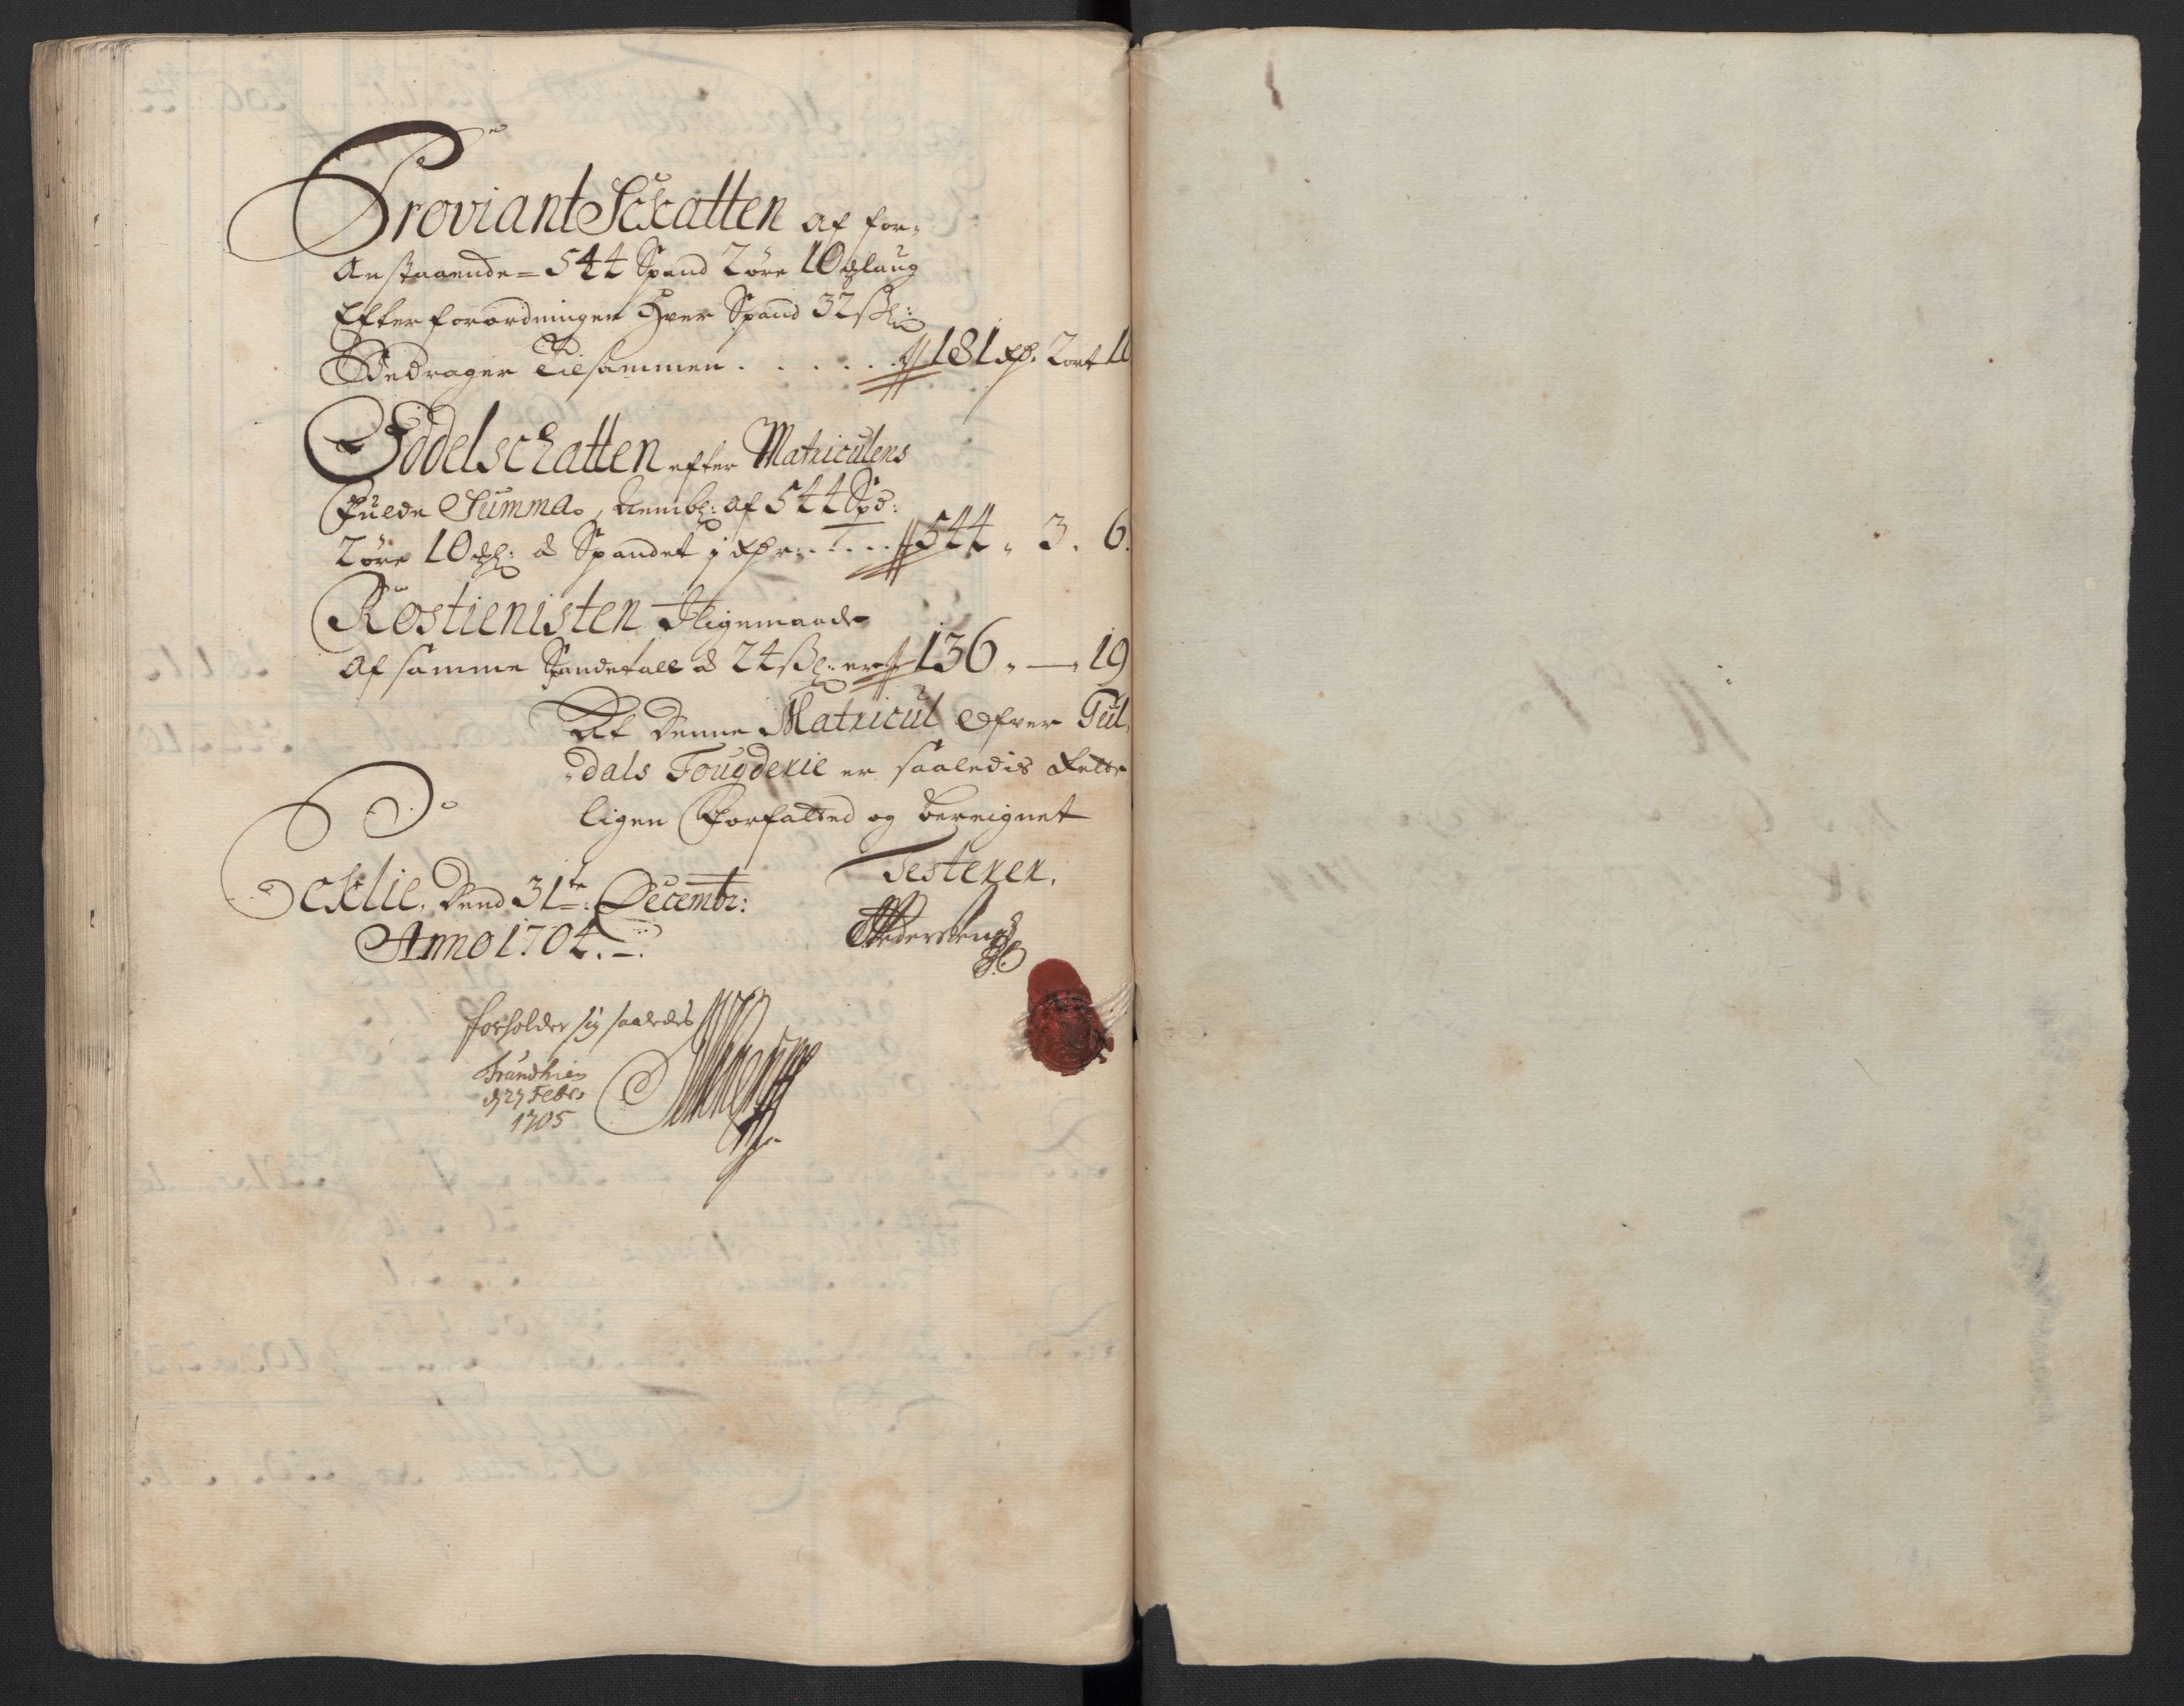 ProviantSchatten af for-
Anstaaende = 544 Spand 2 øre 10 xlaug
Efter forordningen Hver Spand 32 sk:
Bedrager Tilsammen . . . . . 181 rd. 2 ort 1
Oddelschatten efter Matriculens
Fulde Summa, Nembl: af 544 Spd:
2 øre 10 xl: á Spandet j rdr . . . . . 544 „ 3 . 6.
Rostienisten J ligemaade
af samme Spandetall á 24 sk: er 136 „ — „ 19
At Denne Matricul Ofver Gul-
dals Fougderie er saaledis Rette-
ligen Forfatted og bereignet
Testerer.
Lehlie, Dend 31te Decembr:
Anno 1704.
Pedersen
forholder sig saaledes
Trundhiem
d 27 Febr:
1705